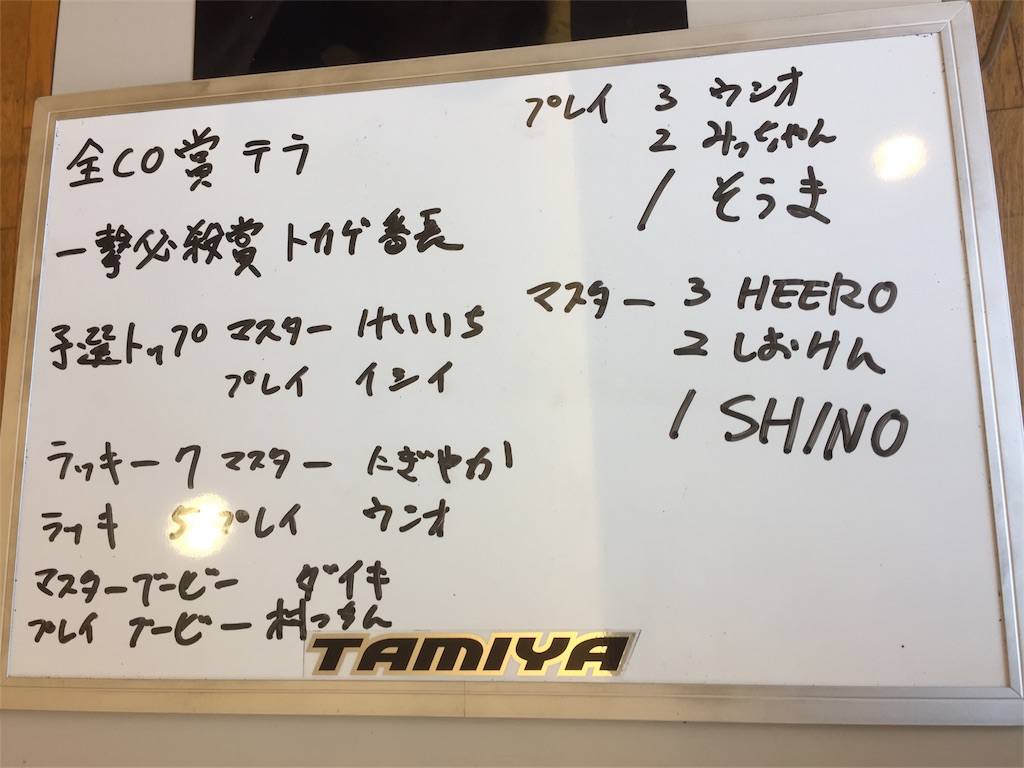 全CO賞 テラ
一撃必殺賞 トカゲ番長
予選トップ マスター けいいち
プレイ イシイ
ラッキー7 マスター にぎやか
ラッキ 5 プレイ ウシオ
マスターブービー ダイキ
プレイ ブービー 村っちん
プレイ 3 ウシオ
2 みっちゃん
1 そうま
マスター 3 HEERO
2 しおけん
1 SHINO
TAMIYA